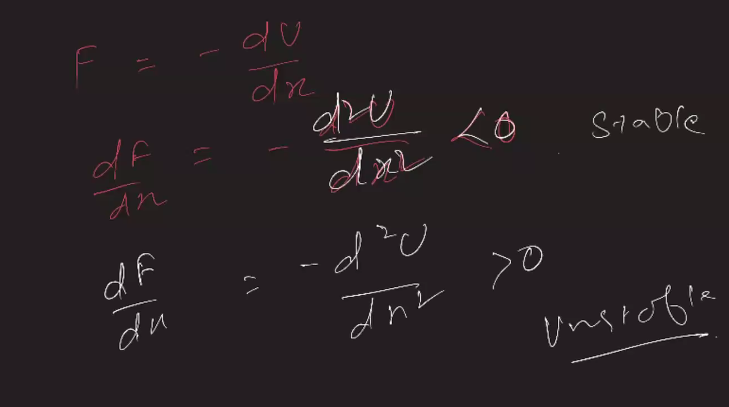 F = - dU/dx
dF/dx = - d²U/dx² < 0 Stable
dF/dx = - d²U/dx² > 0 Unstable